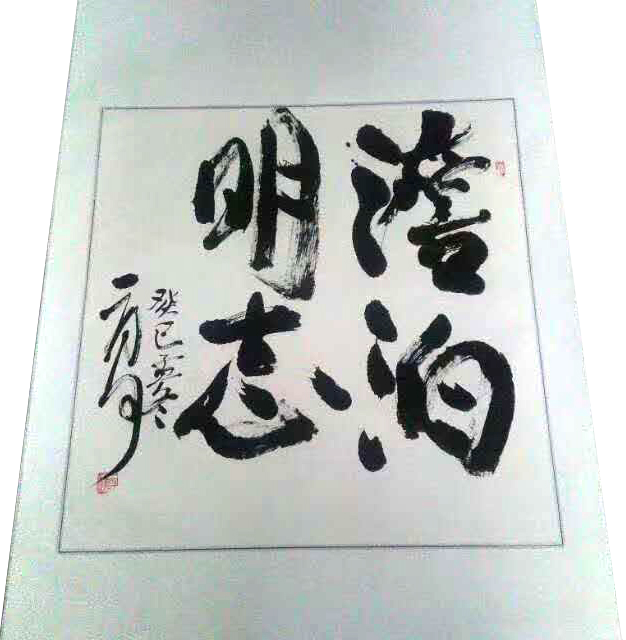 澹泊
明志
癸巳孟冬